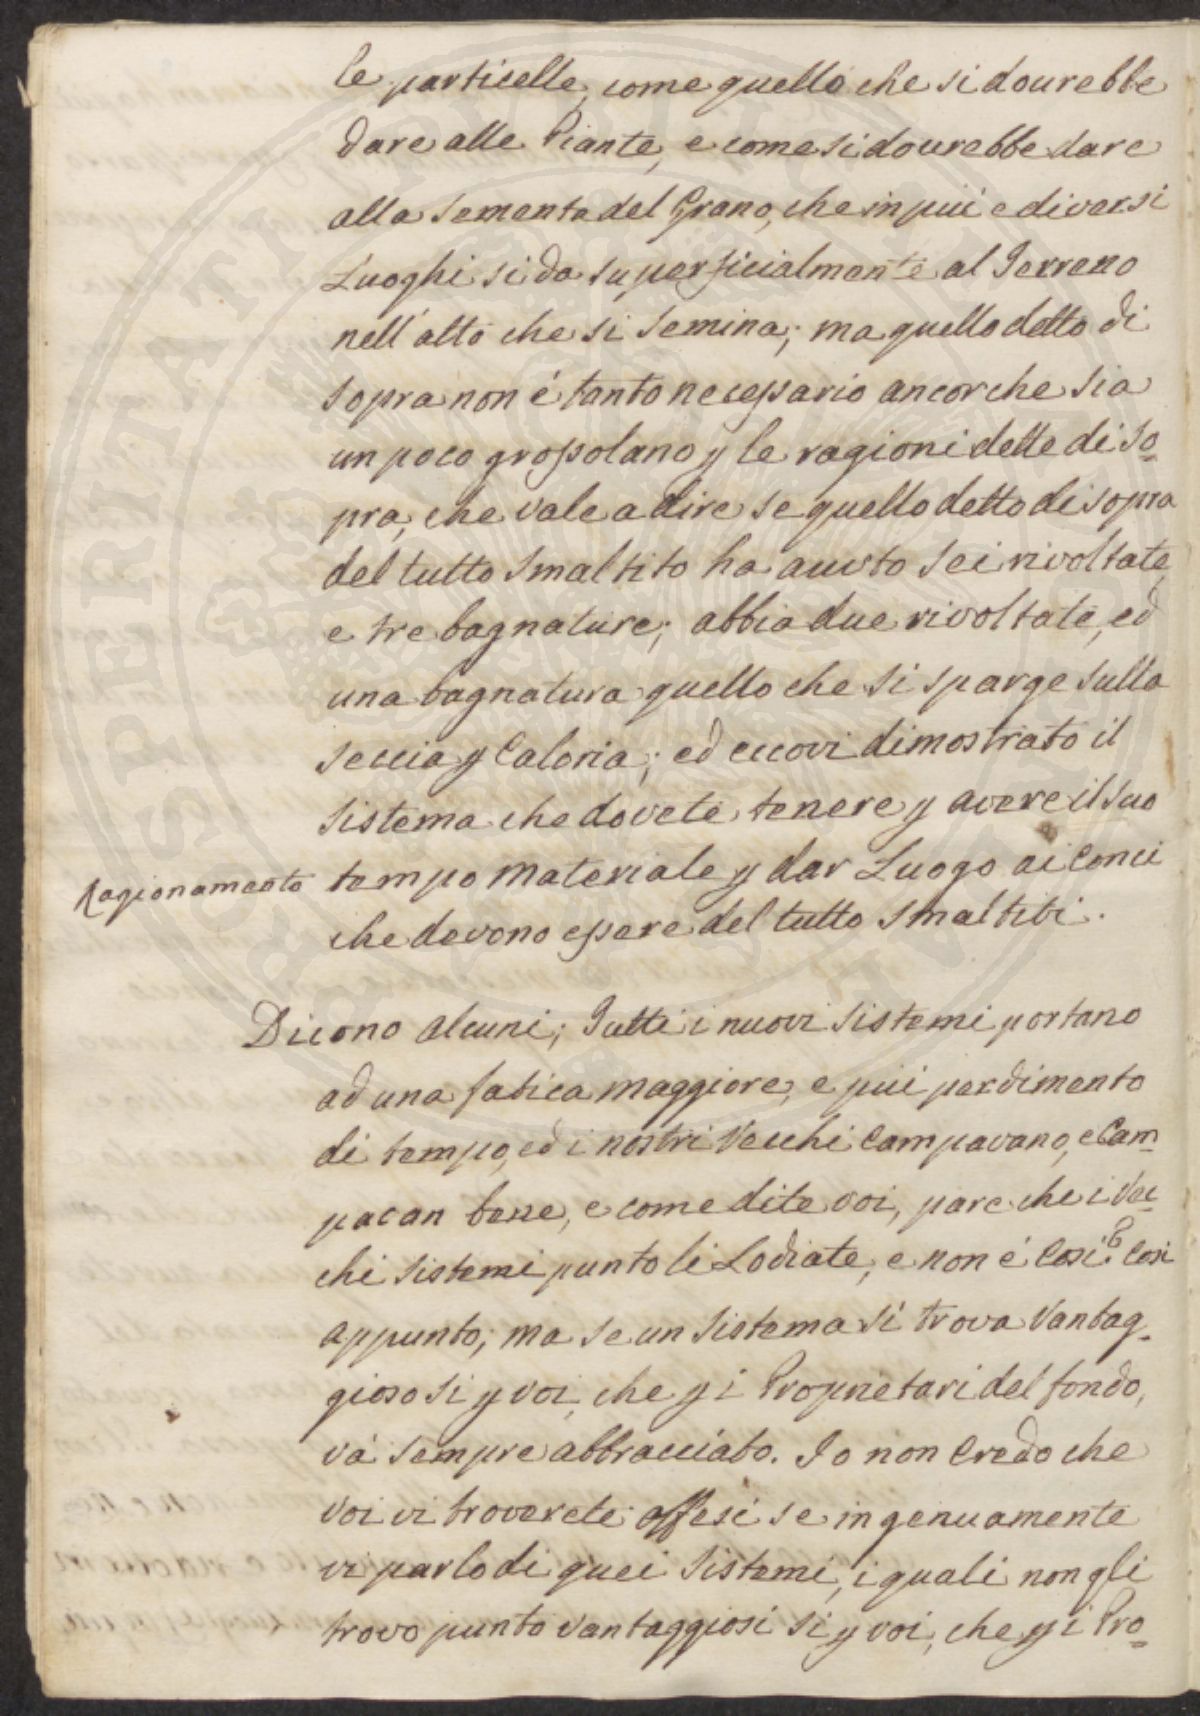 le particelle, come quello che si dourebbe
dare alle Piante, e come si dourebbe dare
alla Sementa del Grano, che in più e diversi
Luoghi si da superficialmente al Terreno
nell'atto che si Semina; ma quello detto di
sopra non é tanto necessario ancorche sia
un poco grossolano p le ragioni dette di So=
pra, che vale a dire se quello detto di sopra
del tutto Smaltito ha auuto Sei rivoltate,
e tre bagnature; abbia due rivoltate, ed
una bagnatura quello che si sparge sulla
seccia p Caloria; ed eccovi dimostrato il
Sistema che dovete tenere p avere il suo
Ragionamento tempo materiale p dar Luogo ai Conci
che devono essere del tutto Smaltiti.
Dicono alcuni; Tutti i nuovi Sistemi portano
ad una fatica maggiore, e più perdimento
di tempo, ed i nostri Vecchi Campavano, e Cam=
pacan bene, e come dite voi, pare che i Vec=
chi Sistemi punto li Lodiate, e non é Cosi? Cosi
appunto; ma se un Sistema si trova Vantag=
gioso si p voi, che p i Proprietari del fondo,
vá sempre abbracciato. Io non Credo che
voi vi troverete offesi se ingenuamente
vi parlo di quei Sistemi, i quali non gli
trovo punto vantaggiosi si p voi, che p i Pro=